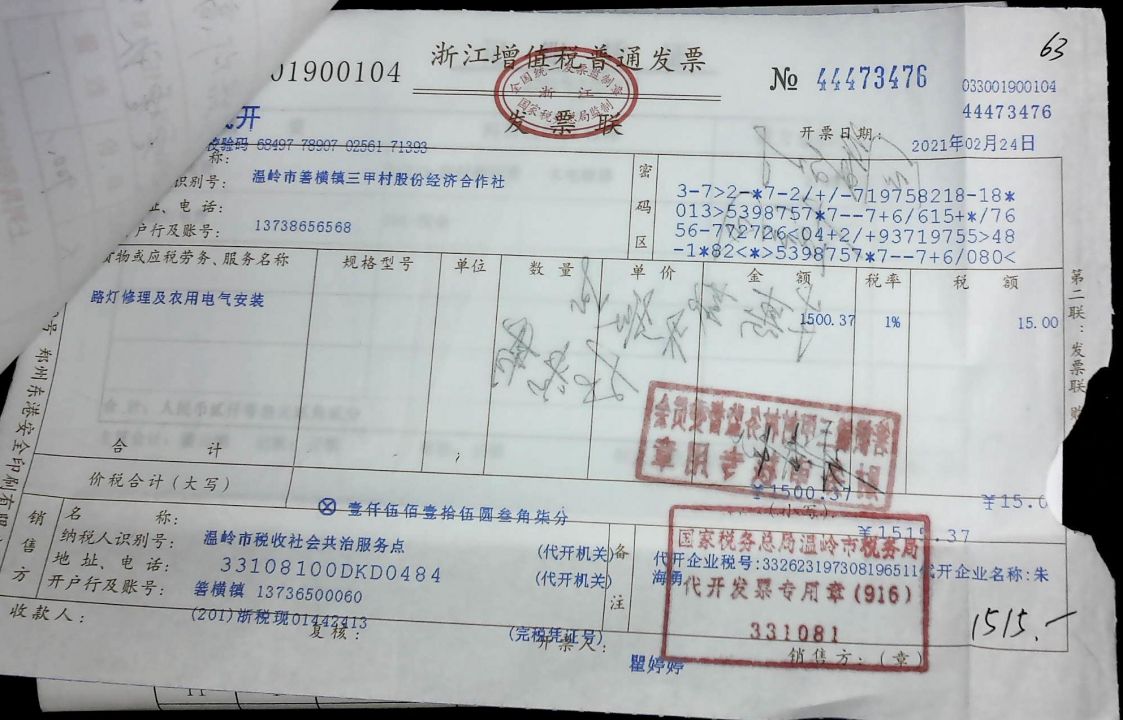 63
01900104
浙江增值税普通发票
№ 44473476
033001900104
44473476
全国统一发票监制章
浙江
国家税务总局监制
发票联
开
开票日期:
2021年02月24日
校验码 68497 78907 02561 71393
称:
识别号:
温岭市箬横镇三甲村股份经济合作社
电 话:
户行及账号:
13738656568
密码区
3-7>2-*7-2/+/-719758218-18*
013>5398757*7--7+6/615+*/76
56-772726<04+2/+93719755>48
-1*82<*>5398757*7--7+6/080<
货物或应税劳务、服务名称
规格型号
单位
数量
单价
金额
税率
税额
路灯修理及农用电气安装
1500.37
1%
15.00
第二联:发票联
号 郑州东港安全印刷有限
合计
¥1500.37
¥15.0
价税合计(大写)
⊗ 壹仟伍佰壹拾伍圆叁角柒分
(小写)
¥1515.37
销售方
名称:
温岭市税收社会共治服务点
(代开机关)
纳税人识别号:
33108100DKD0484
(代开机关)
地址、电话:
箬横镇 13736500060
开户行及账号:
(201)浙税现01442413
(完税凭证号)
备注
代开企业税号:332623197308196511代开企业名称:朱海勇
国家税务总局温岭市税务局
代开发票专用章(916)
331081
1515.-
收款人:
复核:
开票人:
瞿婷婷
销售方:(章)